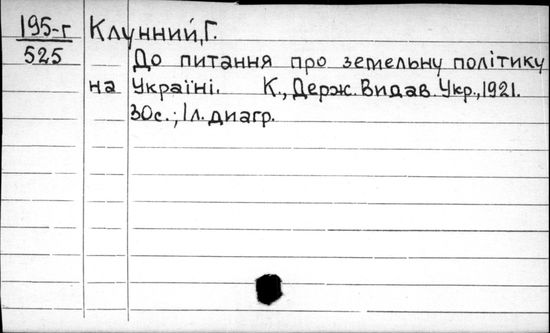 195-г Клунний, Г.
525 До питання про земельну політику
на Україні. К., Держ. Видав. Укр., 1921.
30с.; 1л. диагр.